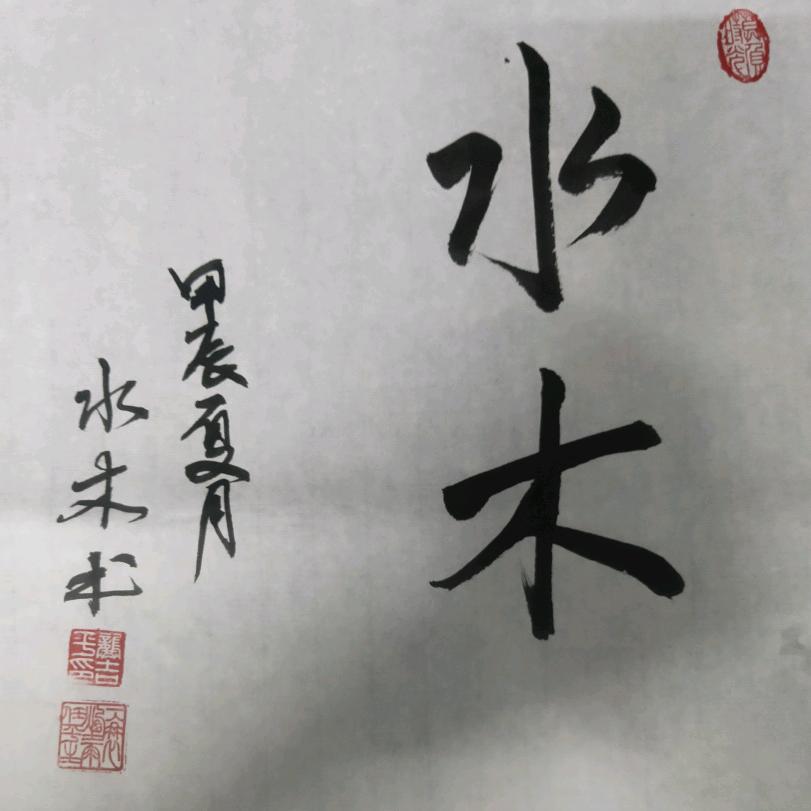 水木
甲辰夏月
水木书